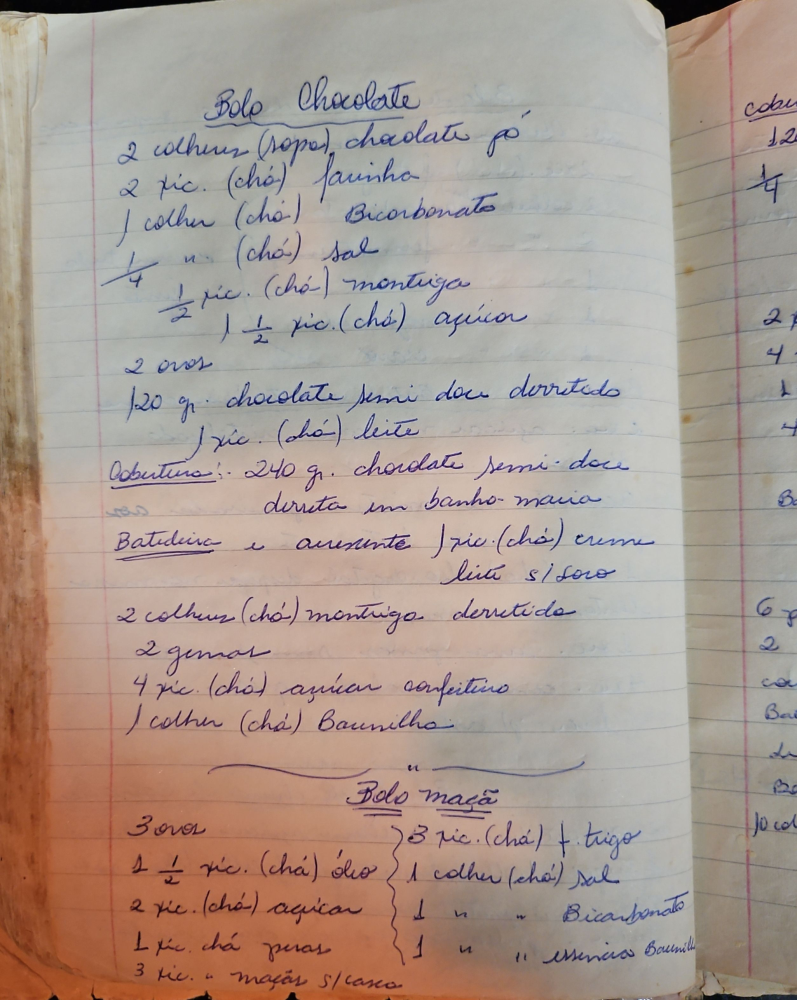 Bolo Chocolate
2 colheres (sopa) chocolate pó
2 xic. (chá) farinha
1 colher (chá) Bicarbonato
1/4 " (chá) sal
1/2 xic. (chá) manteiga
1 1/2 xic. (chá) açúcar
2 ovos
120 gr. chocolate semi doce derretido
1 xic. (chá) leite
Cobertura:- 240 gr. chocolate semi-doce
derreta em banho-maria
Batedeira e acrescente 1 xic. (chá) creme
leite s/soro
2 colheres (chá) manteiga derretida
2 gemas
4 xic. (chá) açúcar confeiteiro
1 colher (chá) Baunilha
"
Bolo maçã
3 ovos
1 1/2 xic. (chá) óleo
2 xic. (chá) açúcar
1 xic. chá
3 xic. " maçãs s/casca
3 xic. (chá) f. trigo
1 colher (chá) sal
1 " " Bicarbonato
1 " " essencia Baunilh
120
1/4
2
4
1
4
6
2